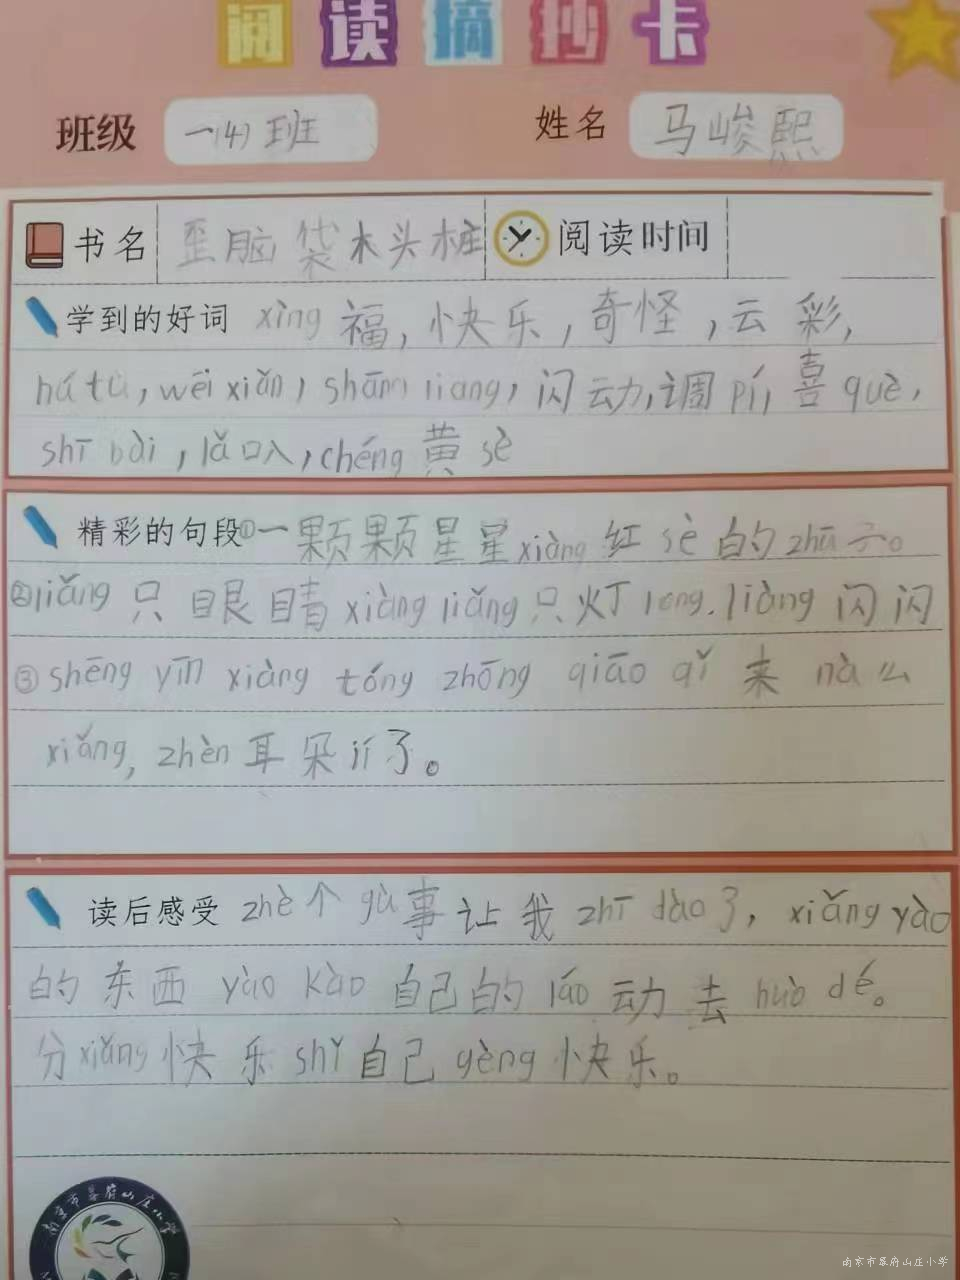 阅读摘抄卡
班级 一(4)班 姓名 马峻熙
书名 歪脑袋木头桩 阅读时间
学到的好词 xìng福,快乐,奇怪,云彩,
hú tu,wēi xiǎn,shāng liang,闪动,调pí,喜què,
shī bài,lǎ叭,chéng黄sè
精彩的句段①一颗颗星星xiàng红sè的zhū子。
②liǎng只眼睛xiàng liǎng只灯long.liàng闪闪
③shēng yīn xiàng tóng zhōng qiāo qǐ来nà么
xiǎng,zhèn耳朵jí了。
读后感受 zhè个gù事让我zhī dào了,xiǎng yào
的东西yào kào自己的láo动去huò dé。
分xiǎng快乐shǐ自己gèng快乐。
南京市幕府山庄小学
南京市幕府山庄小学